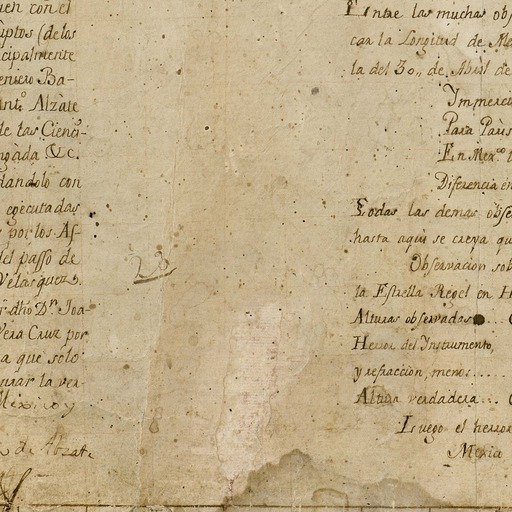 uen con el
uptos (de los
cipalmente
eniero Ba-
ant.º Alzate
de las Cienci-
ngàda &c.
dandolo con
egecutadas
por los As-
del passo de
Velasquez.
dho Dⁿ. Joa-
Vera Cruz por
a que solo
urar la ver-
Mexico y
de Abzate
23
Entre las muchas obs
can la Longitud de Me
la del 30,, de Abril de
Ymmerc
Para Paris
En Mex.co
Diferencia en
Todas las demas obse
hasta aqui se creya qu
Observacion sob
la Estrella Regel en H
Alturas observadas... 
Herror del Ynstrumento,
y refraccion, menos.....
Altura verdadera...
Luego el herror
Mexic